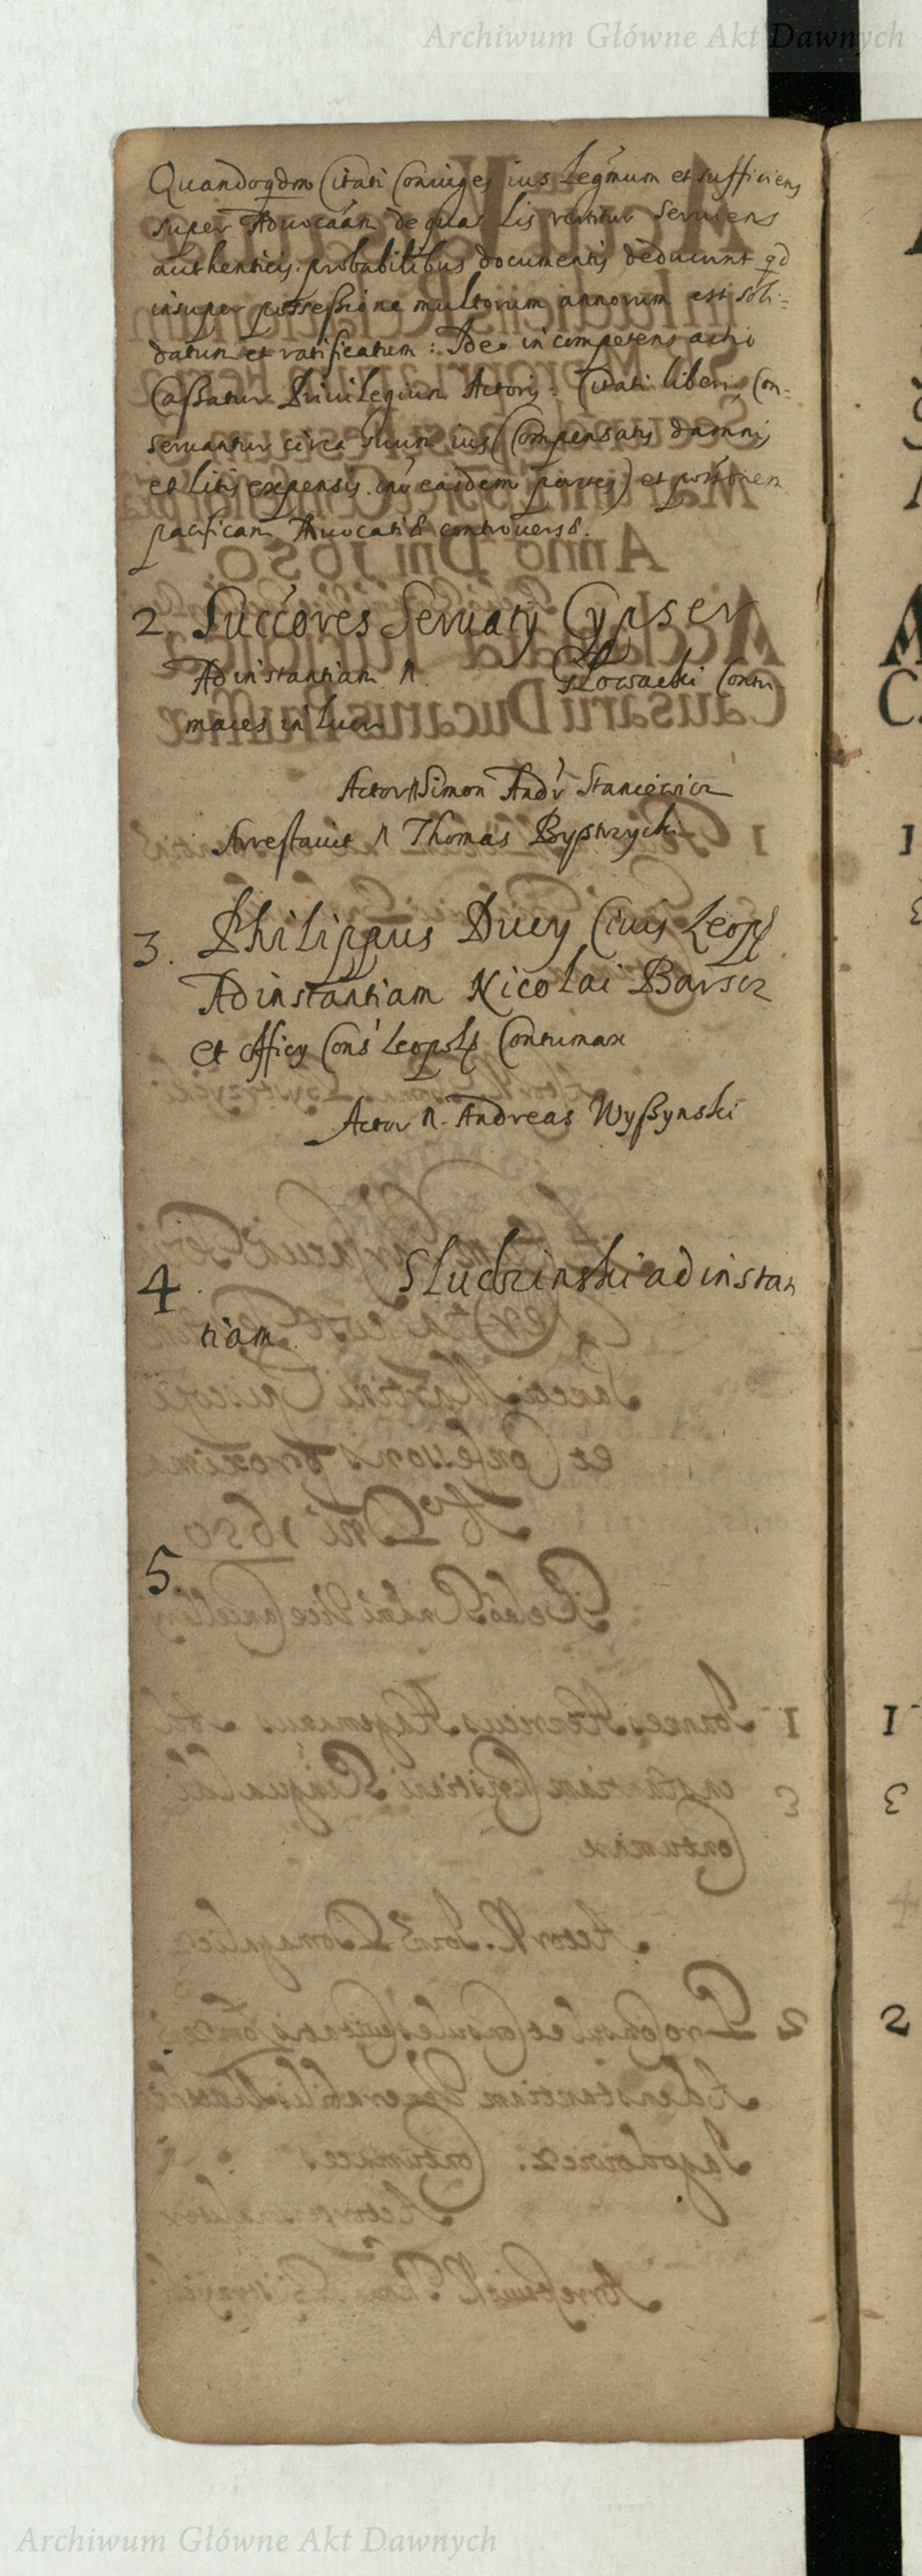 Archiwum Główne Akt Dawnych
Quandoqdm Citati Coniuges ius Legmum et sufficiens
super Aduocaám de qua Lis vertitur seruiens
authenticis probabilibus documentis deducunt qd
insuper possessione multorum annorum est soli=
datum et ratificatum: Ideo incompetens actio
Cassatur Priuilegium Actoris: Citati liberi, Con=
seruantur circa suum ius (Compensatis damnis
et Litis expensis inter easdem partes) et possonem
pacificam Aduocatiae controversae.
2. Succores Seruatij Cypser
Ad instantiam N. Głowacki Contu
maces in lucro
Actor N Simon Andr Stancewicz
Arrestauit N Thomas Bystrzycki
3. Philippus Ducy Ciuis Leopl
Ad instantiam Nicolai Barscz
et Officij Cons Leopols Contumax
Actor N. Andreas Wyssynski
4. Sludzinski ad instan
tiam
5.
1
3
2
Archiwum Główne Akt Dawnych